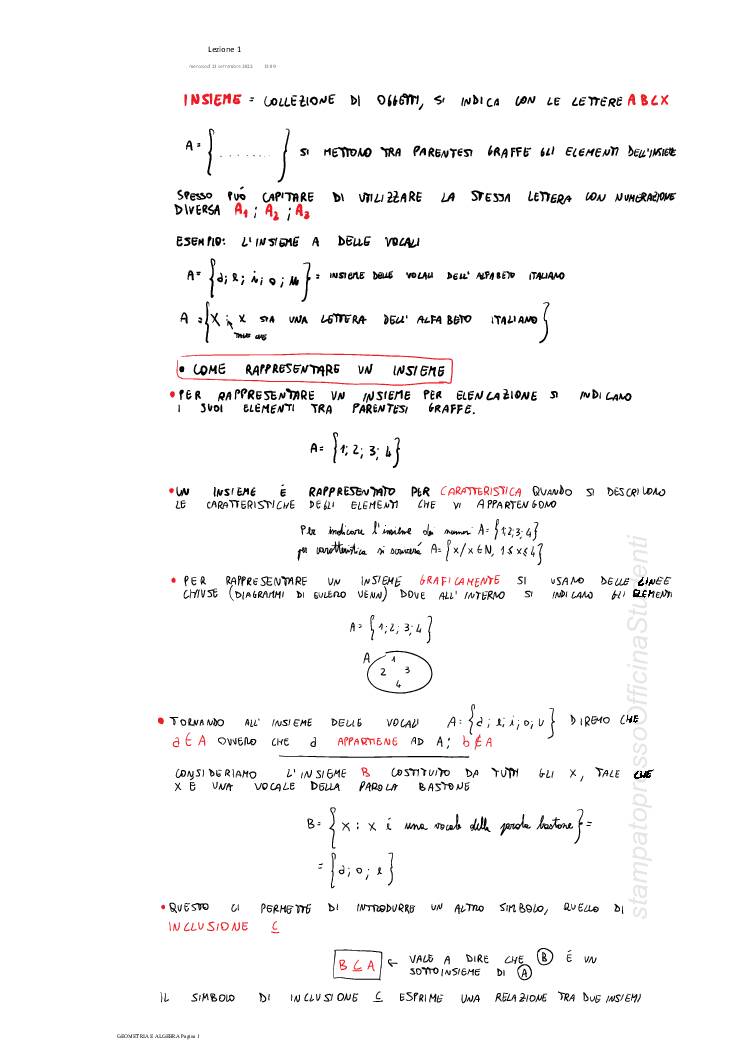 Lezione 1
mercoledì 21 settembre 2022
INSIEME = COLLEZIONE DI OGGETTI, SI INDICA CON LE LETTERE A B C X
A = { ........ } SI METTONO TRA PARENTESI GRAFFE GLI ELEMENTI DELL'INSIEME
SPESSO PUÓ CAPITARE DI UTILIZZARE LA STESSA LETTERA CON NUMERAZIONE
DIVERSA A1 ; A2 ; A3
ESEMPIO: L'INSIEME A DELLE VOCALI
A = {a; e; i; o; u} = INSIEME DELLE VOCALI DELL'ALFABETO ITALIANO
A = {X : X SIA UNA LETTERA DELL'ALFABETO ITALIANO}
TALE CHE
• COME RAPPRESENTARE UN INSIEME
• PER RAPPRESENTARE UN INSIEME PER ELENCAZIONE SI INDICANO
I SUOI ELEMENTI TRA PARENTESI GRAFFE.
A = {1; 2; 3; 4}
• UN INSIEME É RAPPRESENTATO PER CARATTERISTICA QUANDO SI DESCRIVONO
LE CARATTERISTICHE DEGLI ELEMENTI CHE VI APPARTENGONO
Per indicare l'insieme dei numeri A = {1;2;3;4}
per caratteristica si scriverá A = {x/x∈N, 1≤x≤4}
• PER RAPPRESENTARE UN INSIEME GRAFICAMENTE SI USANO DELLE LINEE
CHIUSE (DIAGRAMMI DI EULERO VENN) DOVE ALL'INTERNO SI INDICANO GLI ELEMENTI
A = {1; 2; 3; 4}
A 1
2 3
4
• TORNANDO ALL'INSIEME DELLE VOCALI A = {a; e; i; o; u} DIREMO CHE
a ∈ A OVVERO CHE a APPARTIENE AD A; b ∉ A
CONSIDERIAMO L'INSIEME B COSTITUITO DA TUTTI GLI X, TALE CHE
X E UNA VOCALE DELLA PAROLA BASTONE
B = {X : X é una vocale della parola bastone} =
= {a; o; e}
• QUESTO CI PERMETTE DI INTRODURRE UN ALTRO SIMBOLO, QUELLO DI
INCLUSIONE ⊆
B ⊆ A ← VALE A DIRE CHE B É UN
SOTTOINSIEME DI A
IL SIMBOLO DI INCLUSIONE ⊆ ESPRIME UNA RELAZIONE TRA DUE INSIEMI
GEOMETRIA E ALGEBRA Pagina 1
stampatopressoOfficinaStudenti